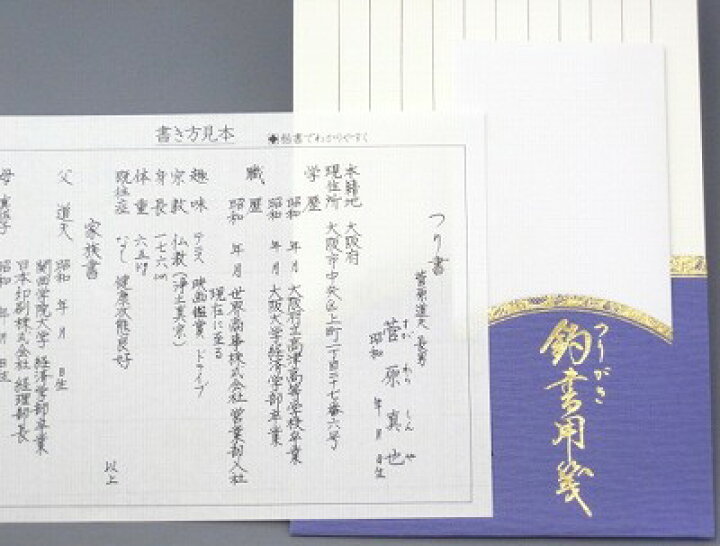 書き方見本
◆楷書でわかりやすく
つり書
菅原道夫 長男
菅原真也
すが わら しん や
昭和 年 月 日生
本籍地 大阪府
現住所 大阪市中央区上町一丁目二十七番六号
学歴
昭和 年 月 大阪府立高津高等学校卒業
昭和 年 月 大阪大学経済学部卒業
職歴
昭和 年 月 世界商事株式会社 営業部入社
現在に至る
趣味 テニス 映画鑑賞 ドライブ
宗教 仏教(浄土真宗)
身長 一七六cm
体重 六五kg
既往症 なし 健康状態良好
以上
家族書
父 道夫 昭和 年 月 日生
関西学院大学 経済学部卒業
日本印刷株式会社 経理部長
母
昭和 年 月 日生
つりがき
釣書用箋